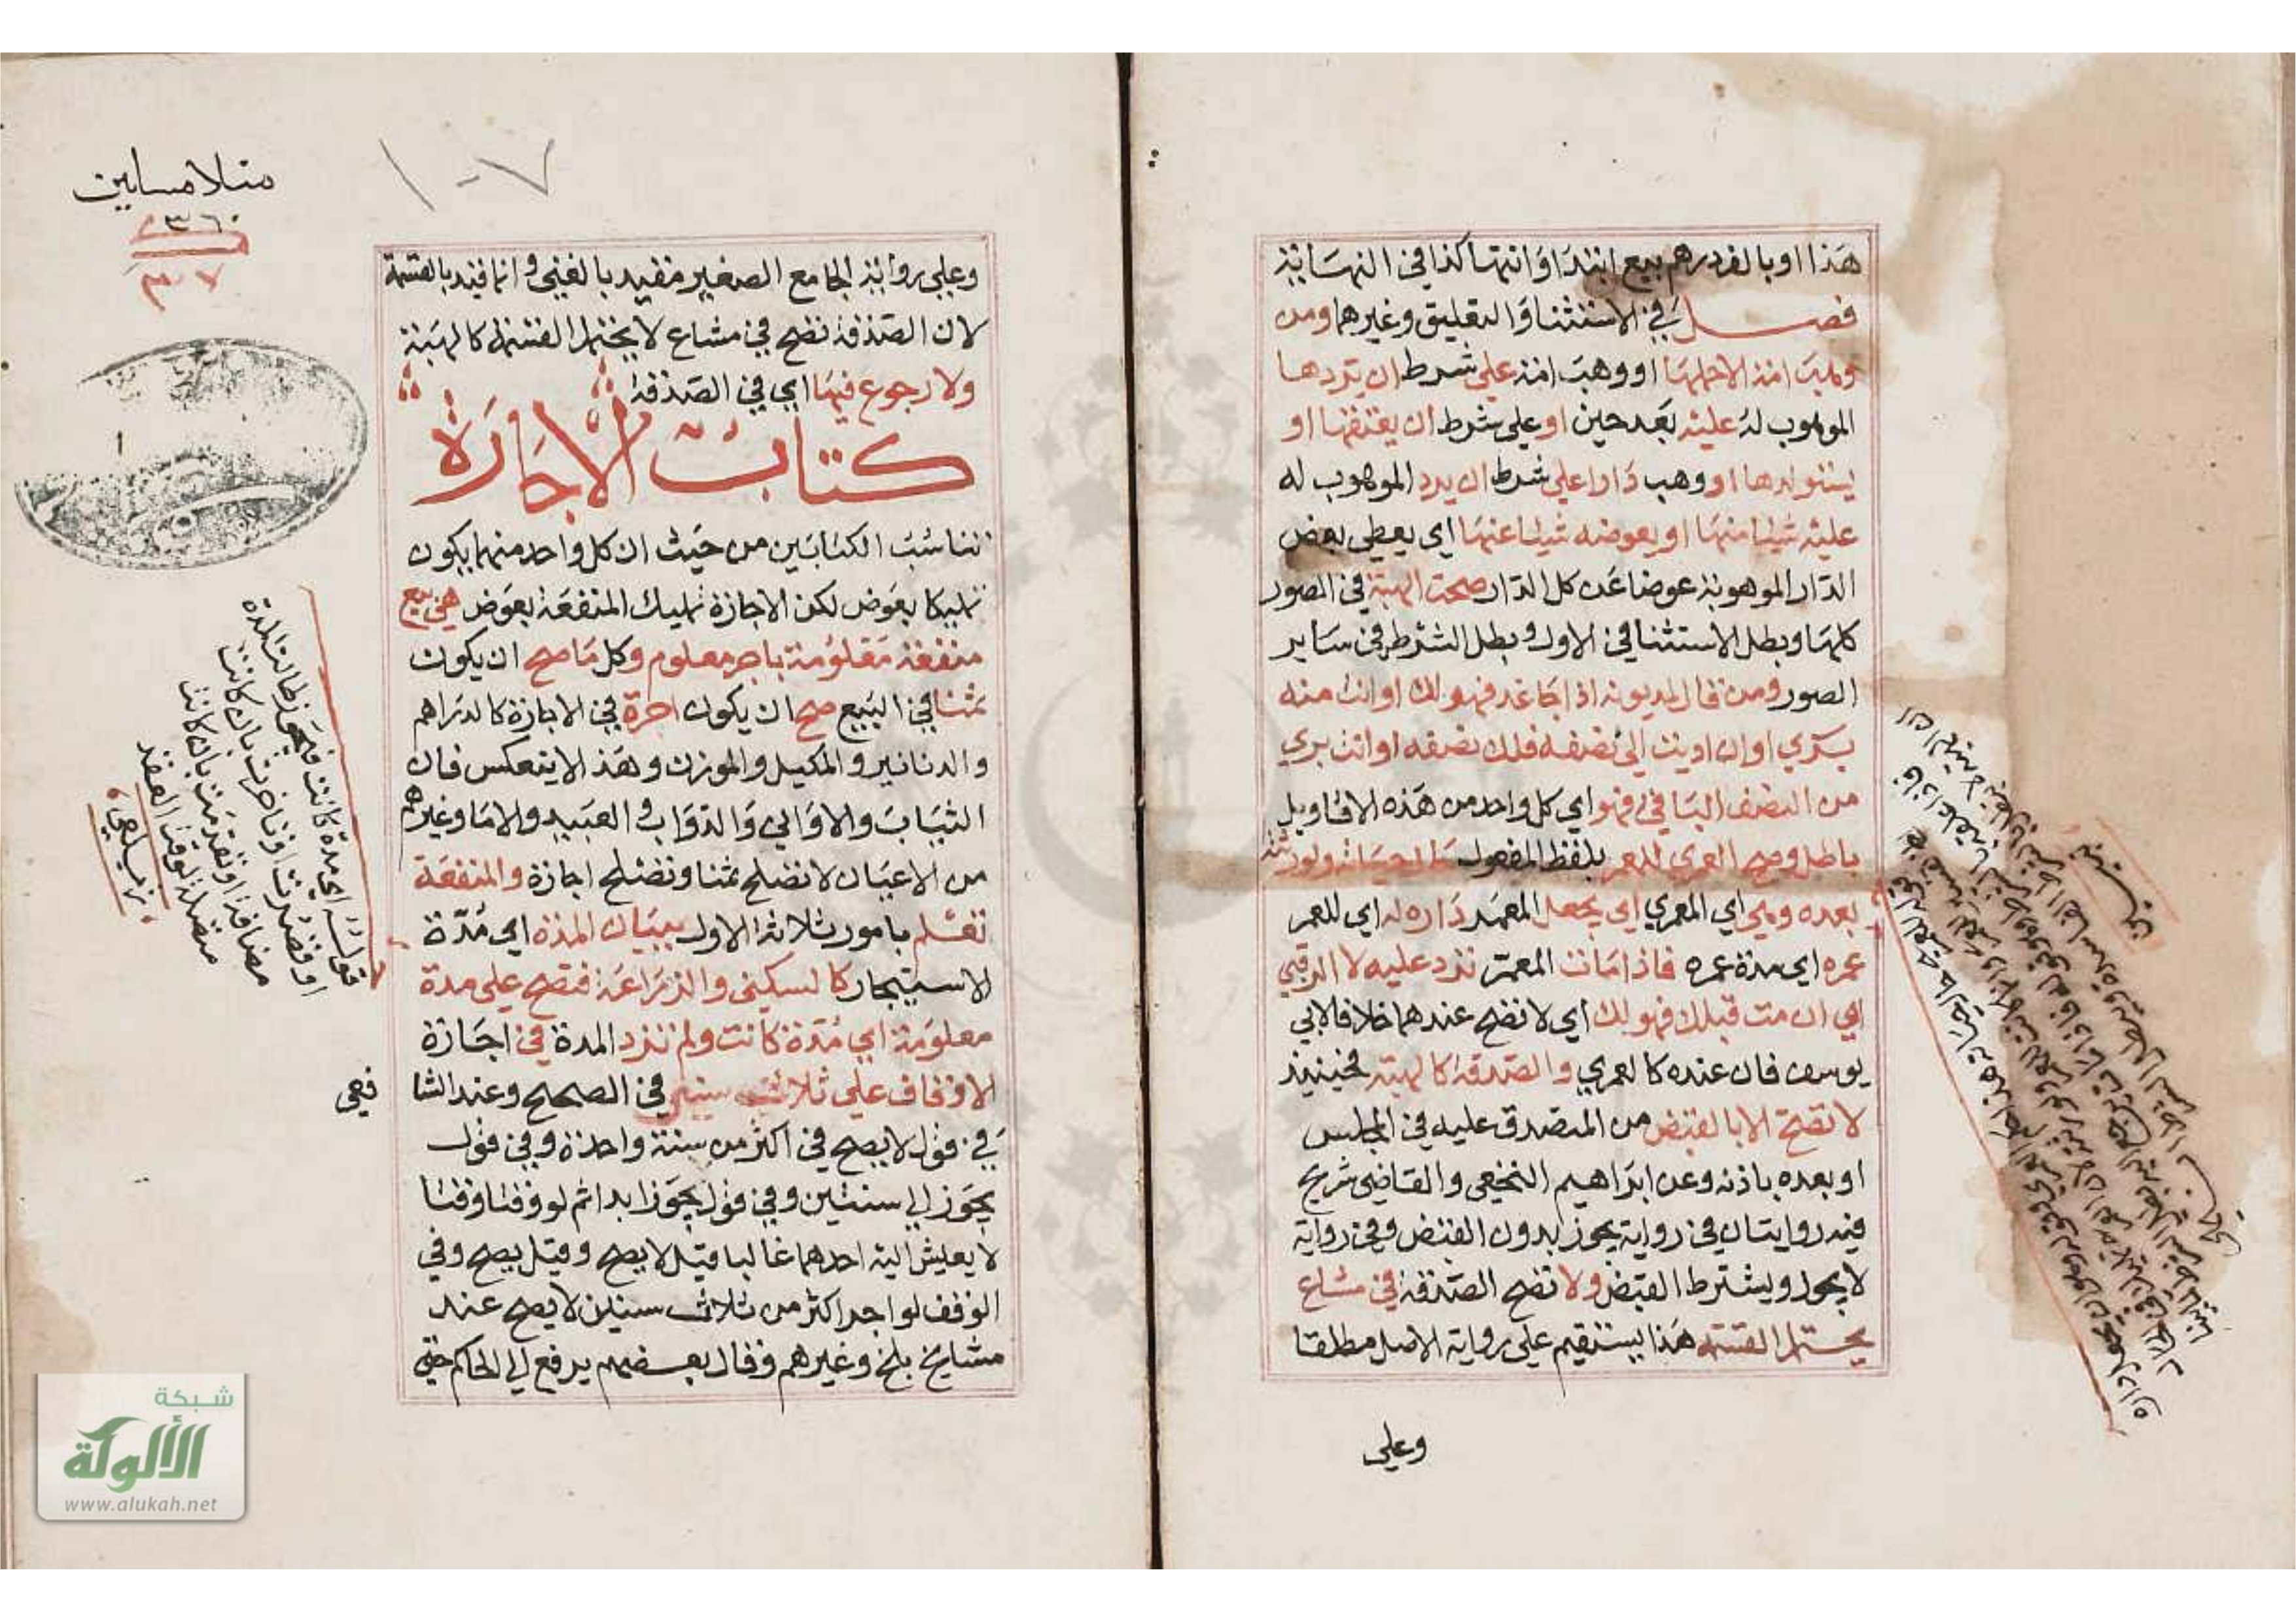 هذا او بالف درهم بيع ابتداء وانتهاء كذا في النهاية
فصل في الاستثناء والتعليق وغيرهما ومن
وهب امة الا حملها او وهب امة على شرط ان يردها
الموهوب له عليه بعد حين او على شرط ان يعتقها او
يستولدها او وهب دارا على شرط ان يرد الموهوب له
عليه شيئا منها او يعوضه شيئا عنها اي يعطي بعض
الدار الموهوبة عوضا عن كل الدار صحت الهبة في الصور
كلها وبطل الاستثنا في الاول وبطل الشرط في ساير
الصور ومن قال لمديونه اذا جا غد فهو لك او انت منه
بري او ان اديت الي نصفه فلك نصفه او انت بري
من النصف الباقي فهو اي كل واحد من هذه الاقاويل
باطل وصح العمري للمعمر بلفظ المفعول حال حياته ولورثته
بعده وهي اي العمري اي يجعل المعمر داره له اي للمعمر
عمره اي مدة عمره فاذا مات المعمر ترد عليه لا الرقبي
اي ان مت قبلك فهو لك اي لا تصح عندهما خلافا لابي
يوسف فان عنده كالعمري والصدقة كالهبة فحينيذ
لا تصح الا بالقبض من المتصدق عليه في المجلس
او بعده باذنه وعن ابراهيم النخعي والقاضي شريح
فيه روايتان في رواية يجوز بدون القبض وفي رواية
لا يجوز ويشترط القبض ولا تصح الصدقة في مشاع
يحتمل القسمة هذا يستقيم على رواية الاصل مطلقا
وعلي
منلا مسكين
٣٦٠
٣٠٧
١٠٧
وعلي رواية الجامع الصغير مقيد بالغني وانما قيد بالقسمة
لان الصدقة تصح في مشاع لا يحتمل القسمة كالهبة
ولا رجوع فيها اي في الصدقة
كتاب الاجارة
تناسب الكتابين من حيث ان كل واحد منهما يكون
تمليكا بعوض لكن الاجارة تمليك المنفعة بعوض هي بيع
منفعة معلومة باجر معلوم وكل ما صح ان يكون
ثمنا في البيع صح ان يكون اجرة في الاجارة كالدراهم
والدنانير والمكيل والموزون وهذا لا ينعكس فان
الثياب والاواني والدواب والعبيد والاما وغيرهم
من الاعيان لا تصلح ثمنا وتصلح اجارة والمنفعة
تعلم بامور ثلاثة الاول ببيان المدة اي مدة
الاستيجار كالسكني والزراعة فتصح على مدة
معلومة اي مدة كانت ولم تزد المدة في اجارة
الاوقاف على ثلاث سنين في الصحيح وعند الشا
فعي
في قول لا يصح في اكثر من سنة واحدة وفي قول
يجوز الي سنتين وفي قول يجوز ابدا ثم لو وقتا وقتا
لا يعيش اليه احدهما غالبا قيل لا يصح وقيل يصح وفي
الوقف لو اجر اكثر من ثلاث سنين لا يصح عند
مشايخ بلخ وغيرهم وقال بعضهم يرفع الي الحاكم حتي
قوله اي مدة كانت فيجوز طالت المدة
او قصرت او تاخرت بان كانت
مضافة او تقدمت بان كانت
متصلة لوقت العقد
زيلعي
شبكة
الألوكة
www.alukah.net